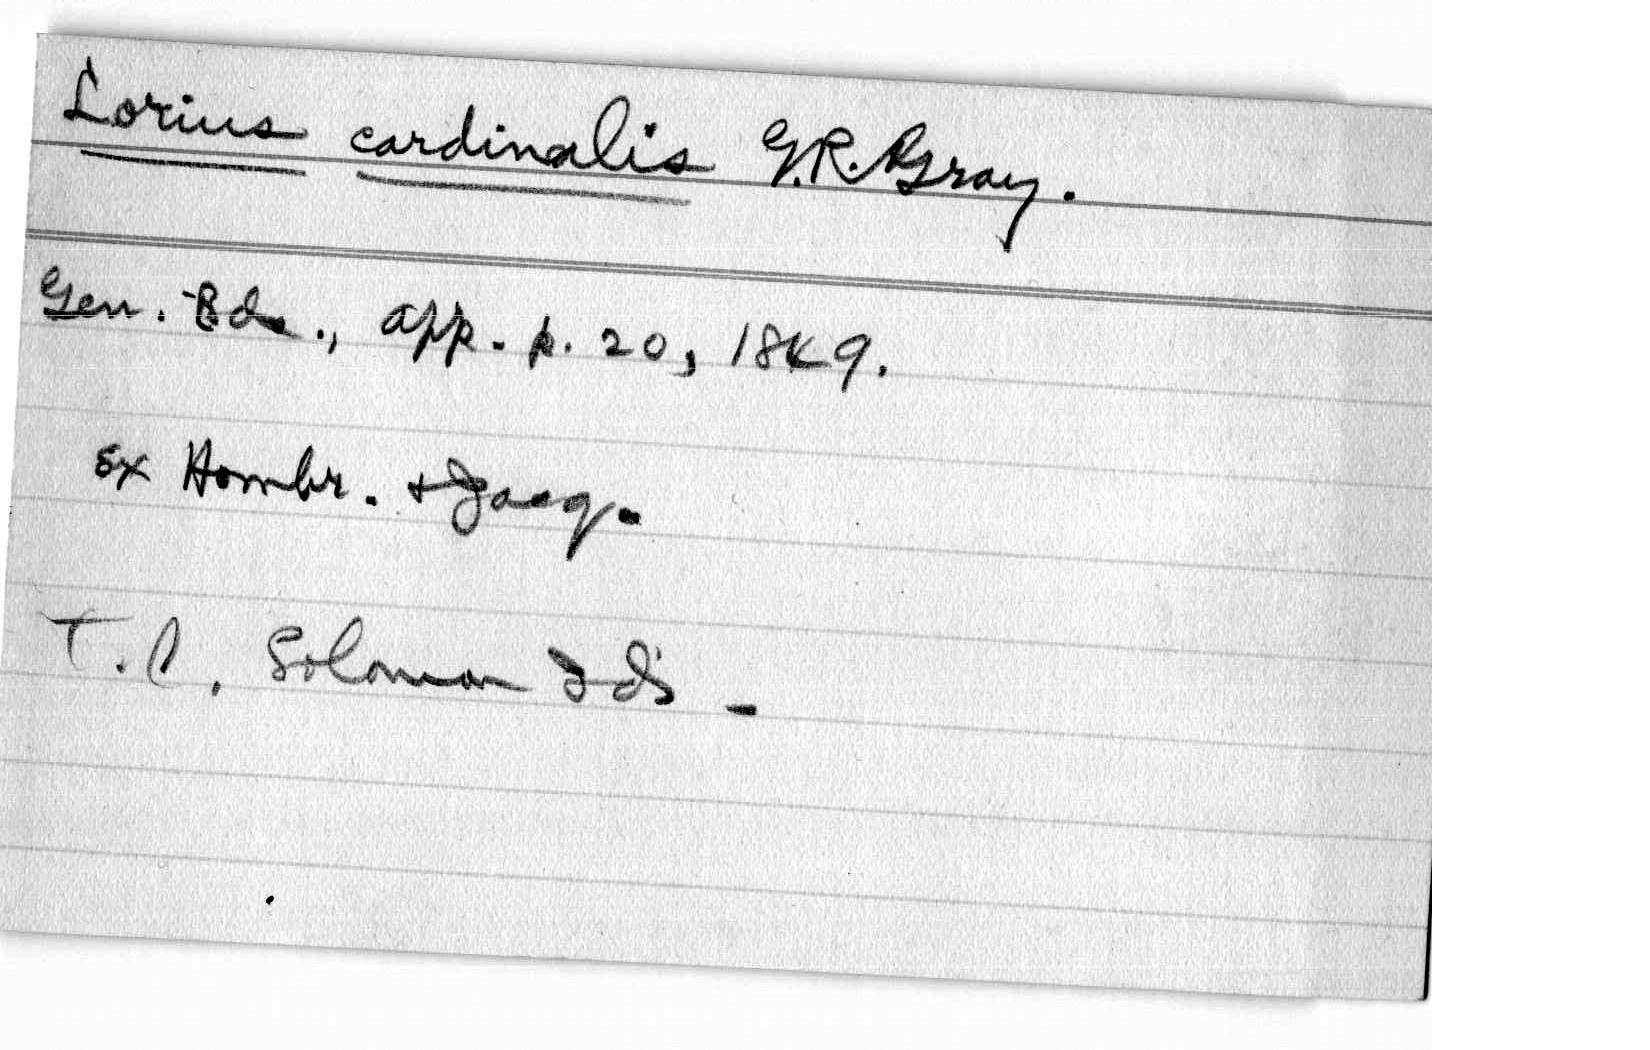 Lorius cardinalis G.R. Gray.
Gen. Bds., app. p. 20, 1849.
ex Hombr. + Jacq.
T.C. Solomon Ids -